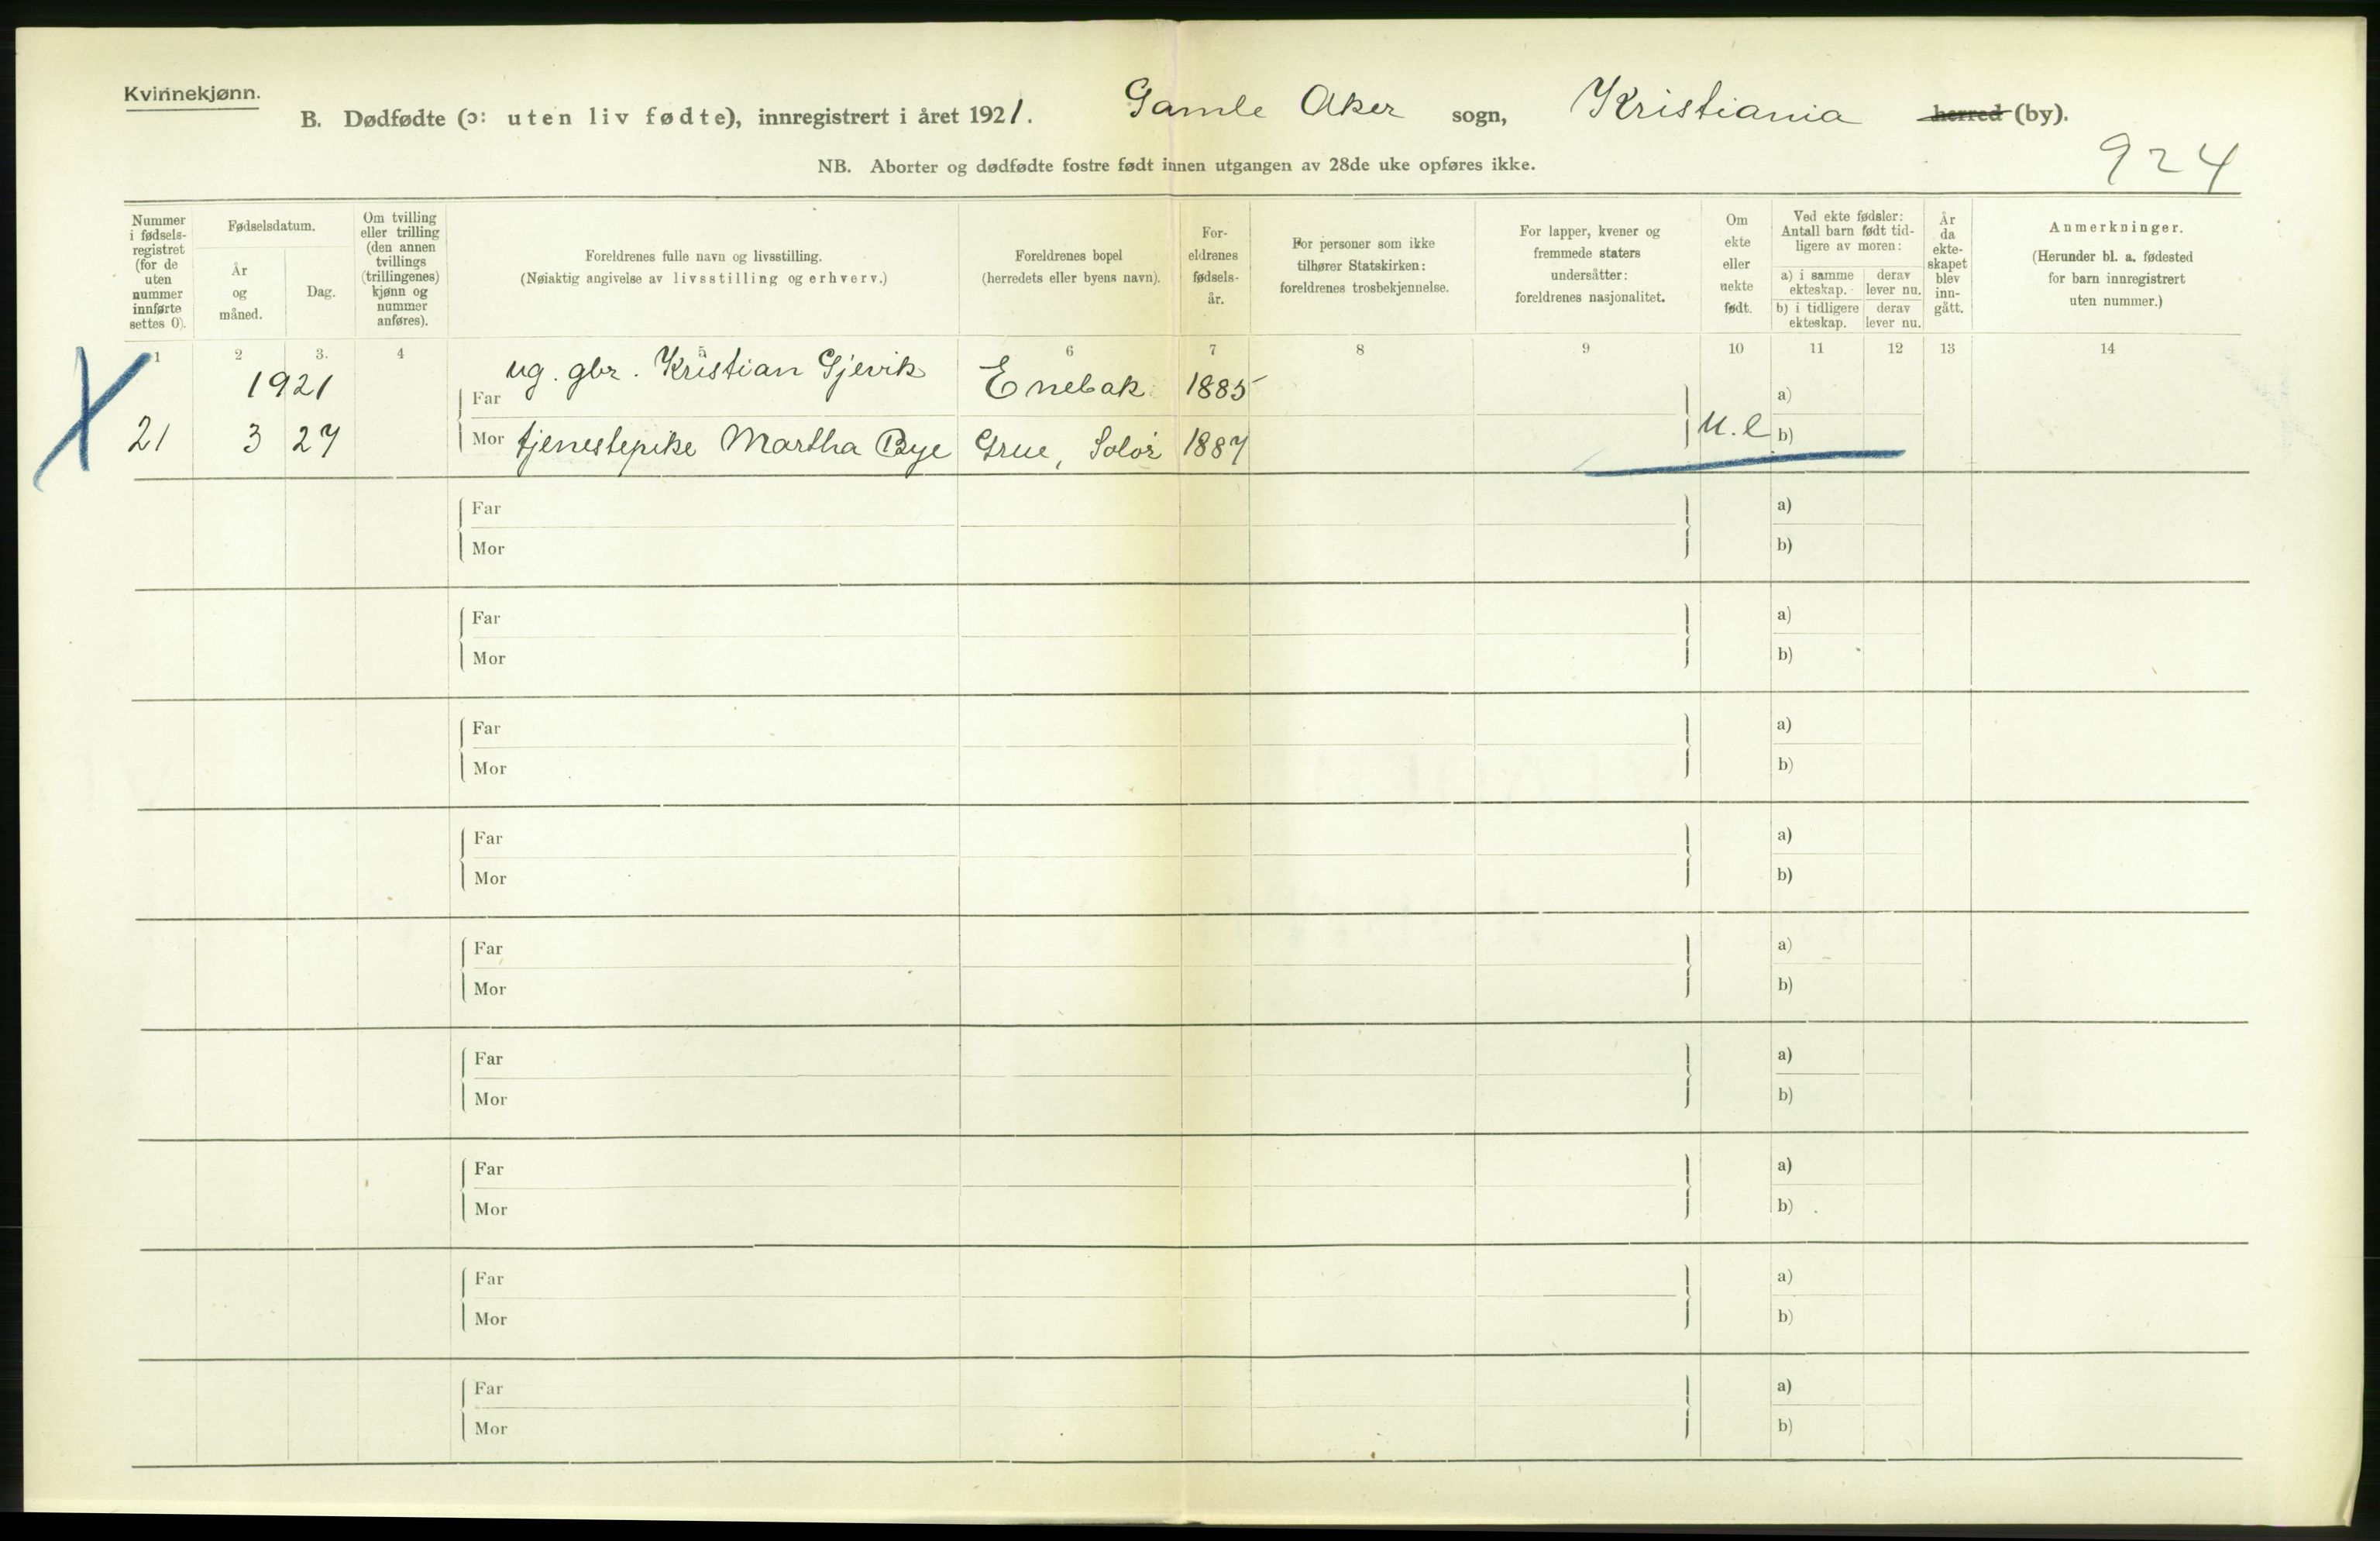 Kvinnekjønn.
B. Dødfødte (ɔ: uten liv fødte), innregistrert i året 1921. Gamle Aker sogn, Kristiania herred (by).
924
NB. Aborter og dødfødte fostre født innen utgangen av 28de uke opføres ikke.
Nummer
i fødsels-
registret
(for de
uten
nummer
innførte
settes 0).
Fødselsdatum.
År
og
måned.
Dag.
Om tvilling
eller trilling
(den annen
tvillings
(trillingenes)
kjønn og
nummer
anføres).
Foreldrenes fulle navn og livsstilling.
(Nøiaktig angivelse av livsstilling og erhverv.)
Foreldrenes bopel
(herredets eller byens navn).
For-
eldrenes
fødsels-
år.
For personer som ikke
tilhører Statskirken:
foreldrenes trosbekjennelse.
For lapper, kvener og
fremmede staters
undersåtter:
foreldrenes nasjonalitet.
Om
ekte
eller
uekte
født.
Ved ekte fødsler:
Antall barn født tid-
ligere av moren:
a) i samme
ekteskap.
derav
lever nu.
b) i tidligere
ekteskap.
derav
lever nu.
År
da
ekte-
skapet
blev
inn-
gått.
Anmerkninger.
(Herunder bl. a. fødested
for barn innregistrert
uten nummer.)
1 2 3. 4 5 6 7 8 9 10 11 12 13 14
1921 Far ug. gbr. Kristian Gjevik Enebak 1885 a)
21 3 27 Mor tjenestepike Martha Bye Grue, Solør 1887 U.e b)
Far a)
Mor b)
Far a)
Mor b)
Far a)
Mor b)
Far a)
Mor b)
Far a)
Mor b)
Far a)
Mor b)
Far a)
Mor b)
Far a)
Mor b)
Far a)
Mor b)